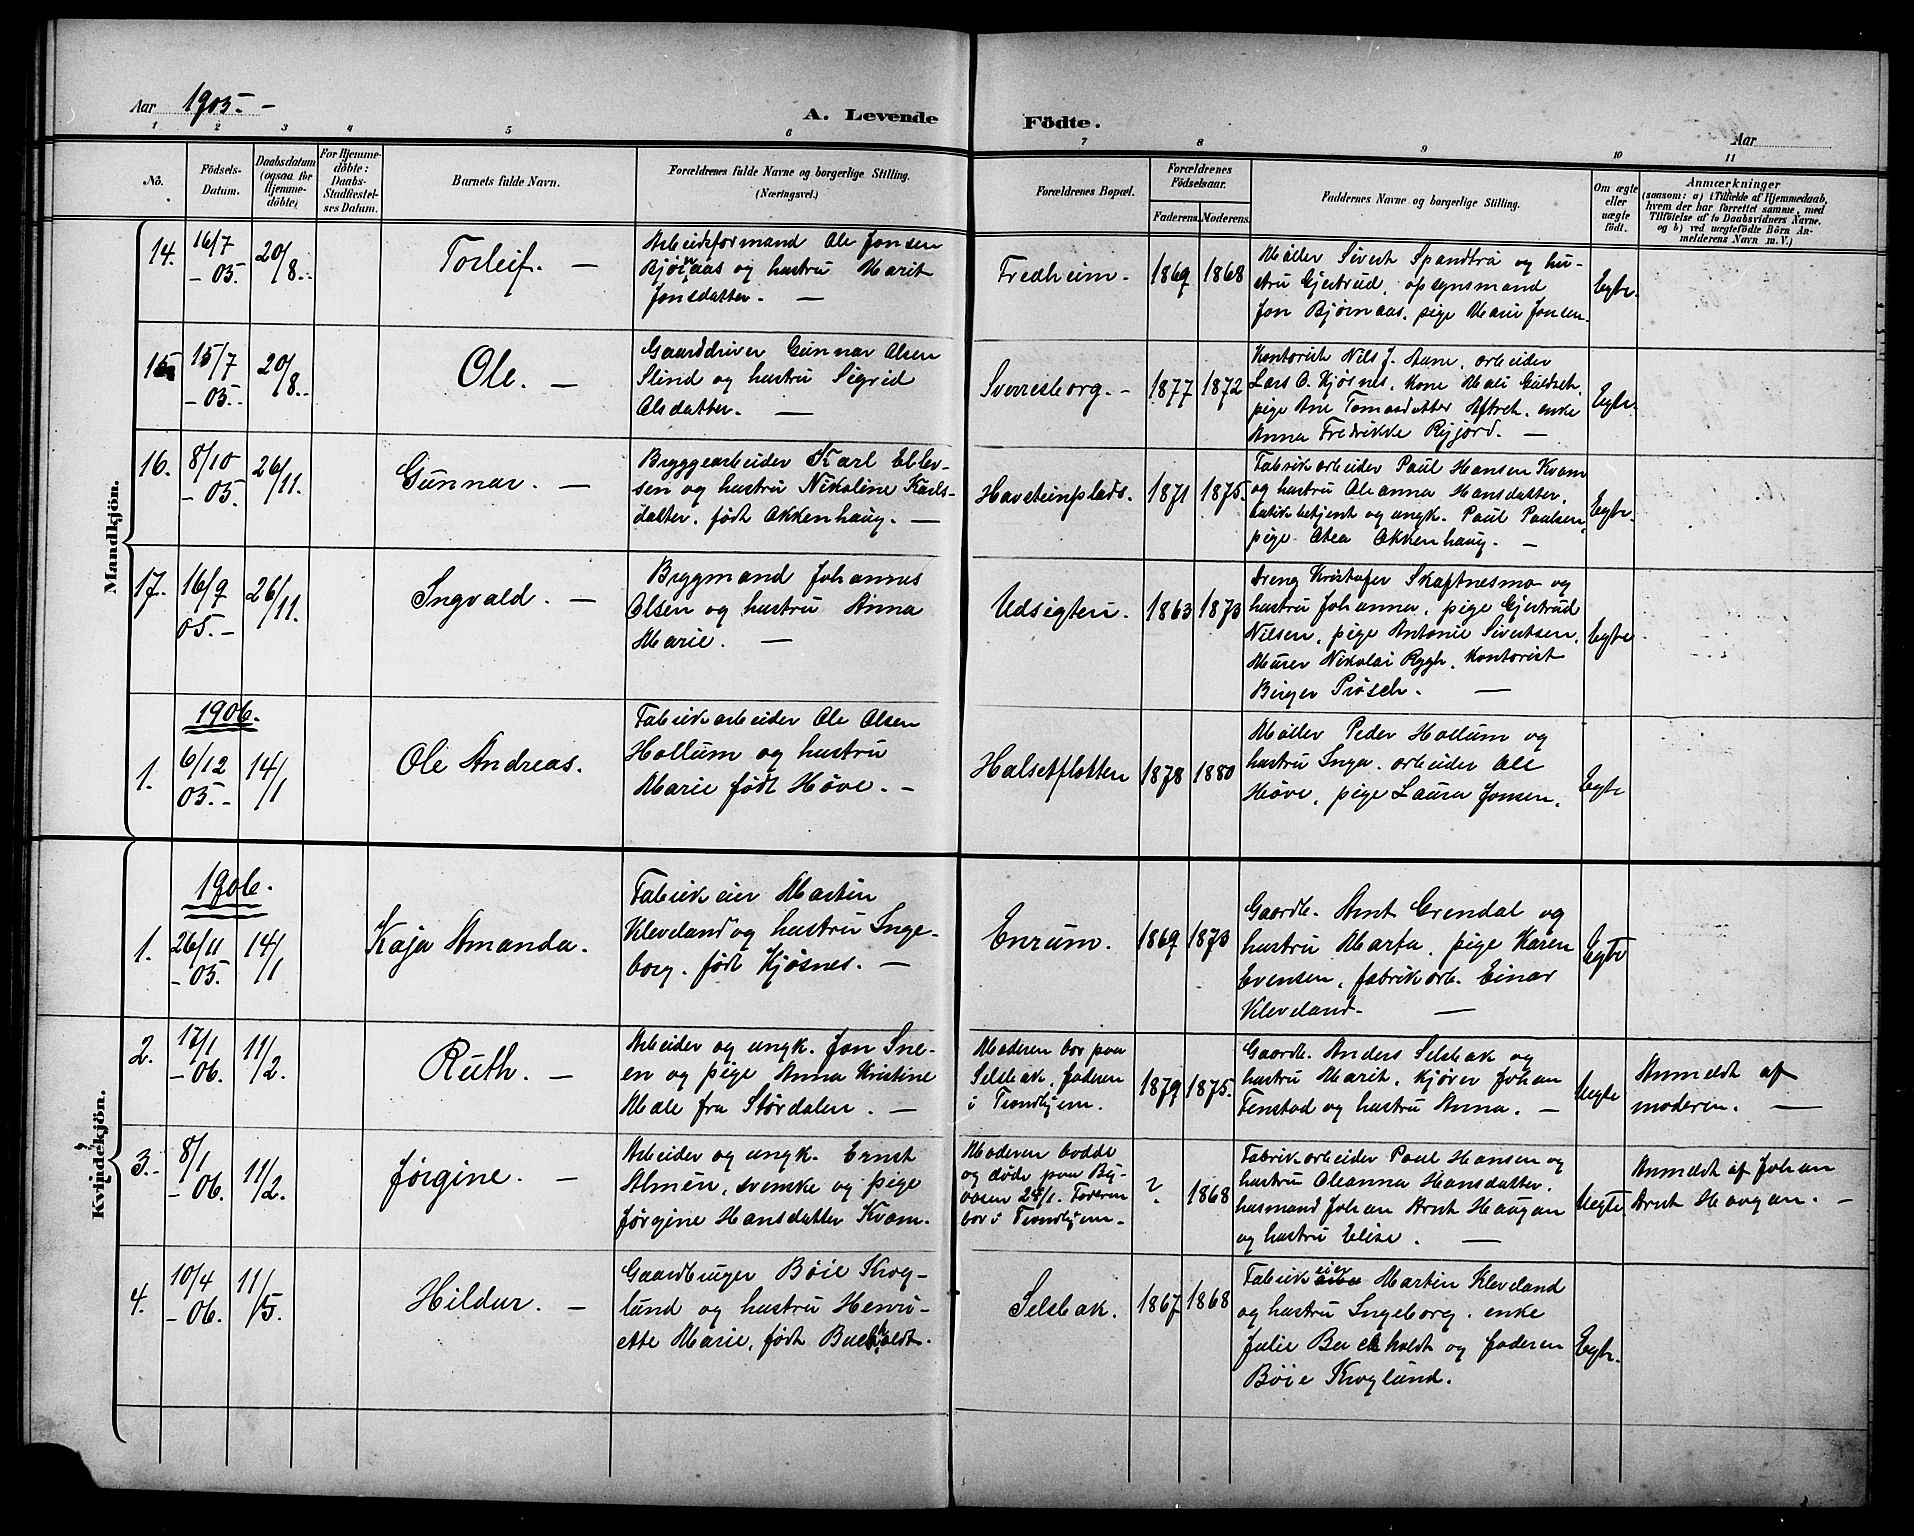 Aar 1905.-
A. Levende Födte.
Aar
1 2 3 4 5 6 7 8 9 10 11
No.
Födsels-
Datum.
Daabsdatum
(ogsaa for
Hjemme-
döbte)
For Hjemme-
döbte:
Daabs-
Stadfæstel-
ses Datum.
Barnets fulde Navn.
Forældrenes fulde Navne og borgerlige Stilling.
(Næringsvei.)
Forældrenes Bopæl.
Forældrenes
Födselsaar.
Faderens. Moderens.
Faddernes Navne og borgerlige Stilling.
Om ægte
eller
uægte
født.
Anmærkninger
(saasom: a) i Tilfælde af Hjemmedaab,
hvem der har forrettet samme, med
Tilföielse af to Daabsvidners Navne.
og b) ved uægtefödte Börn An-
melderens Navn m. V.)
Mandkjön.
14.
16/7
- 05.
20/8.
Torleif. —
Arbeidsformand Ole Jonsen
Bjørnaas og hustru Marit
Jonsdatter. —
Fredheim.
1869 1868
Møller Sivert Spandtrø og hu-
stru Gjertrud, opsynsmand
Jon Bjørnaas, pige Marie Jonsen.
Egte.
15
15/7
- 05.
20/8.
Ole. —
Gaarddriver Gunnar Olsen
Slind og hustru Sigrid
Olsdatter. —
Sverresborg. -
1877 1872
Kontorist Nils J. Aune, arbeider
Lars O. Kjøsnes, kone Mali Guldseth,
pige Ane Tomasdatter Aftret, enke
Anna Fredrikke Ryjord. —
Egte.
16.
8/10
- 05.
26/11.
Gunnar. —
Bryggearbeider Karl Ellev-
sen og hustru Nikoline Karls-
datter, født Okkenhaug. —
Havsteinplads.
1871 1875.
Fabrikarbeider Paul Hansen Kvam
og hustru Oleanna Hansdatter,
butikbetjent og ungk. Paul Paulsen,
pige Olea Okkenhaug. —
Egte.
17.
16/9
05. -
26/11.
Ingvald. —
Brygmand Johannes
Olsen og hustru Anna
Marie. —
Udsigten.
1863 1873
Dreng Kristofer Skaptnesmo og
hustru Johanna, pige Gjertrud
Nilsen, pige Antonie Sivertsen,
Murer Nikolai Rygh, Kontorist
Birger Prøsch. —
Egte
1906.
1.
6/12
05. -
14/1
Ole Andreas.
Fabrikarbeider Ole Olsen
Hollum og hustru
Marie født Høve. -
Halsetflotten
1878 1880
Møller Peder Hollum og
hustru Inga, arbeider Ole
Høve, pige Laura Jonsen.
Egte
Kvindekjön.
1906.
1.
26/11
- 05.
14/1
Kaja Amanda.
Fabrikeier Martin
Kleveland og hustru Inge-
borg, født Kjøsnes. —
Enrum.
1869 1873
Gaardb. Arnt Grendal og
hustru Marta, pige Karen
Evensen, fabrikarb. Einar
Kleveland. —
Egte
2.
17/1
- 06.
11/2.
Ruth. —
Arbeider og ungk. Jon Sne-
en og pige Anna Kristine
Mæle fra Størdalen. —
Moderen bor paa
Selsbak, faderen
i Trondhjem.
1879 1875.
Gaardb. Anders Selsbak og
hustru Marit, kjører Johan
Tenstad og hustru Anna. —
Uegte
Anmeldt af
moderen. —
3.
8/1
- 06.
11/2.
Jørgine. —
Arbeider og ungk. Ernst
Almén, svenske og pige
Jørgine Hansdatter Kvam.
Moderen bodde
og døde paa By-
aasen 28/1. Faderen
bor i Trondhjem.
? 1868
Fabrikarbeider Paul Hansen og
hustru Oleanna Hansdatter,
husmand Johan Arnt Haugan
og hustru Elise. —
Uegte
Anmeldt af Johan
Arnt Haugan. —
4.
10/4
- 06.
11/5.
Hildur. —
Gaardbruger Bøie Krog-
lund og hustru Henri-
ette Marie, født Buchholdt.
Selsbak.
1867 1868
Fabrikeier Martin Kleveland
og hustru Ingeborg, enke
Julie Buchholdt og faderen
Bøie Kroglund.
Egte.